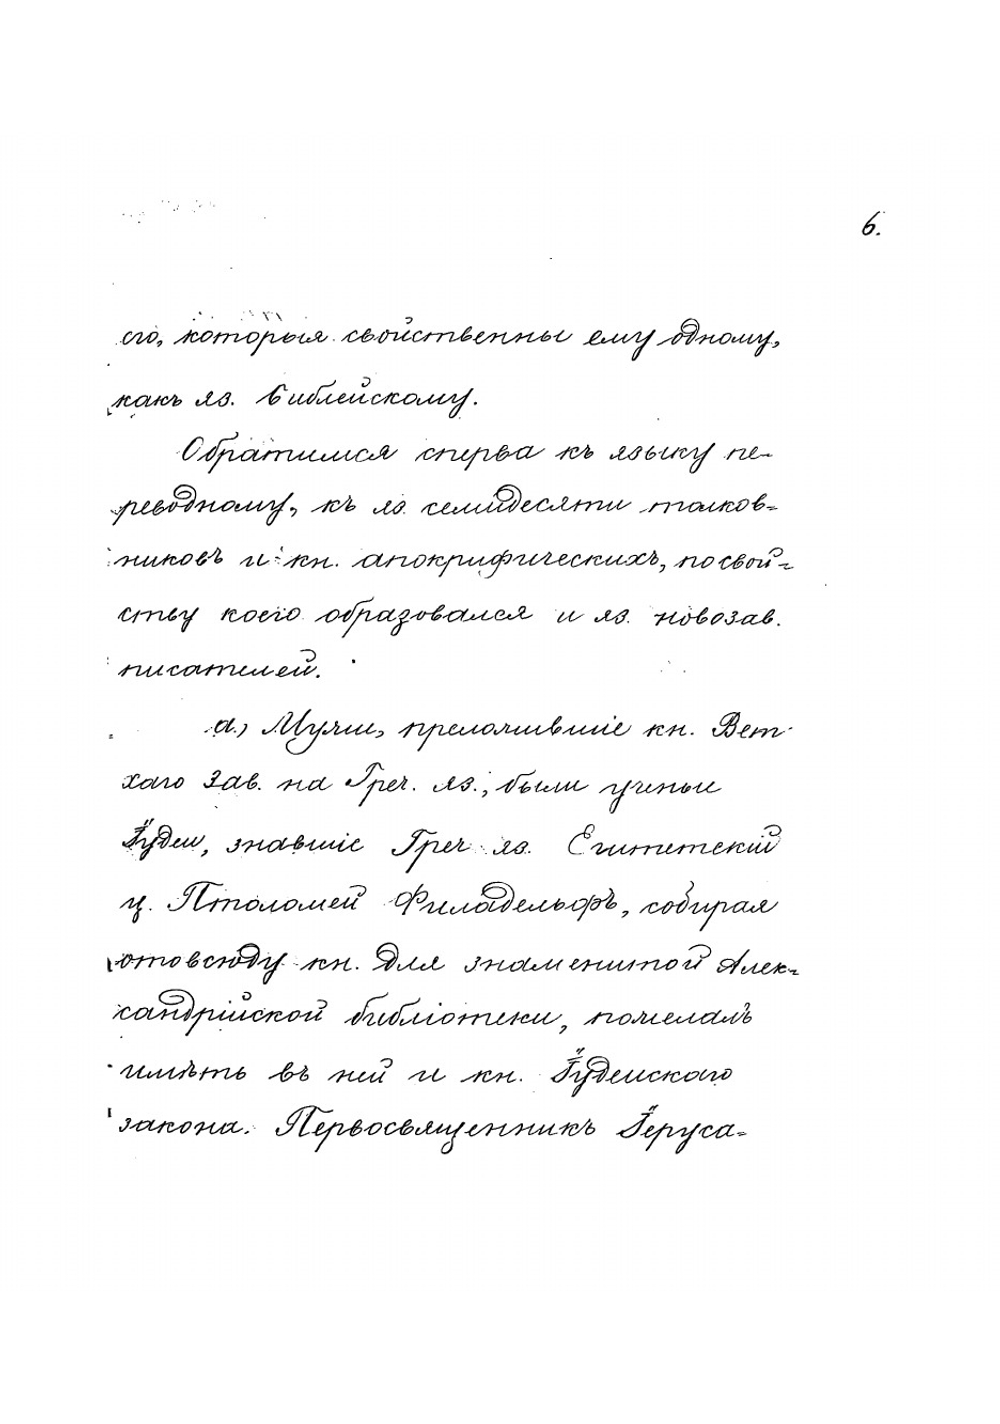 6.
его, которыя свойственны ему одному,
какъ яз. библейскому.
Обратимся сперва къ языку пе-
реводному, къ яз. семидесяти толков-
никовъ и кн. апокрифическихъ, по свой-
ству коего образовался и яз. новозав.
писателей.
а.) Мужи, преложившіе кн. Вет-
хаго Зав. на Греч. яз., были ученые
Іудеи, знавшіе Греч. яз. Египетскій
ц. Птоломей Филадельфъ, собирая
отовсюду кн. для знаменитой Алек-
сандрійской библіотеки, пожелалъ
имѣть въ ней и кн. Іудейскаго
закона. Первосвященникъ Іеруса-